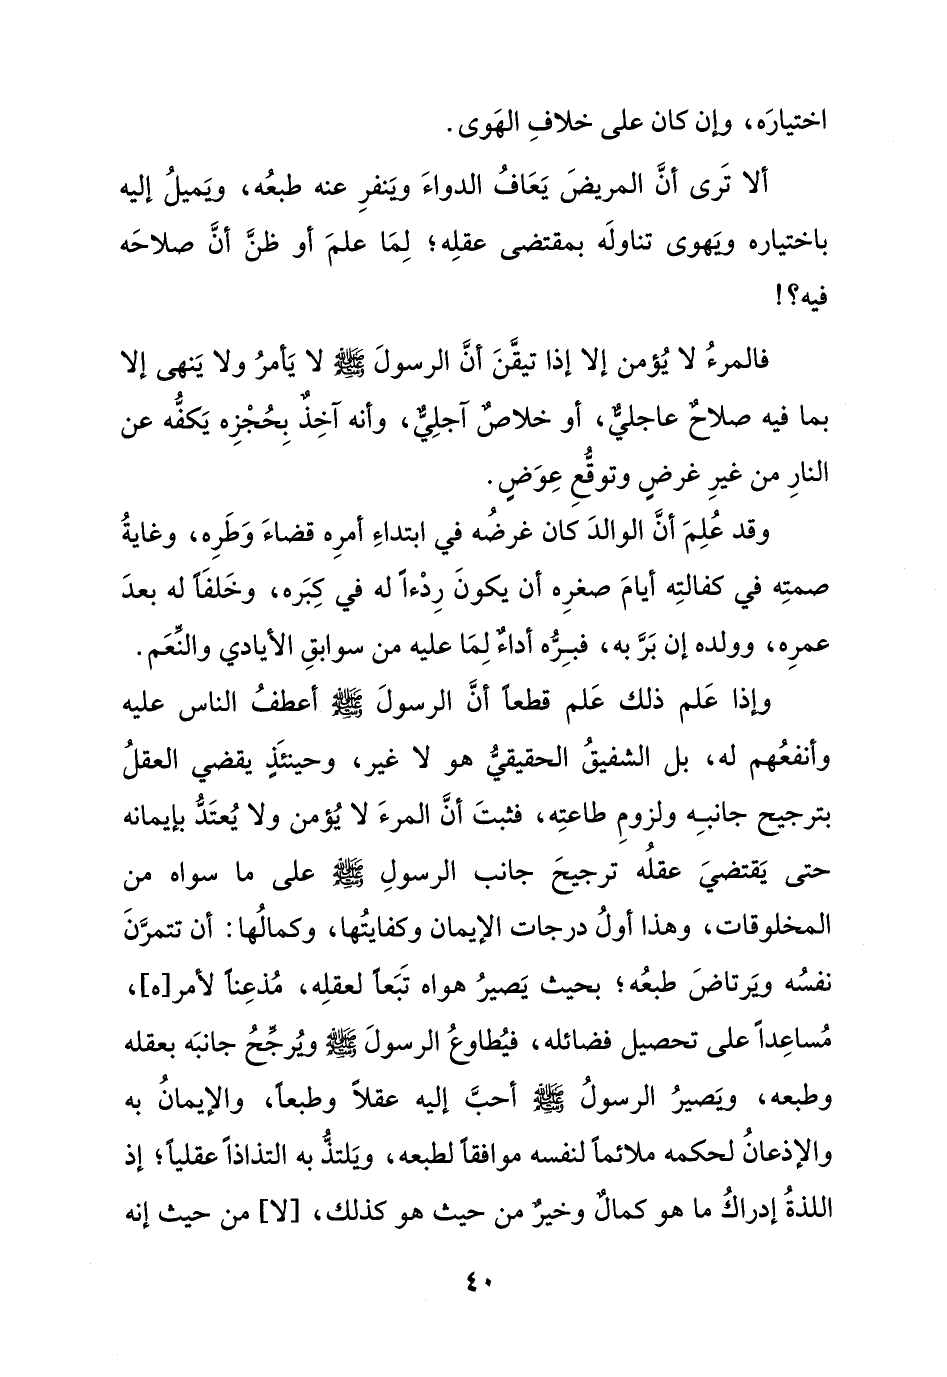 اختيارَه، وإن كان على خلافِ الهَوى.
ألا تَرى أنَّ المريضَ يَعَافُ الدواءَ ويَنفرِ عنه طبعُه، ويَميلُ إليه
باختياره ويَهوى تناولَه بمقتضى عقلِه؛ لِمَا علمَ أو ظنَّ أنَّ صلاحَه
فيه؟!
فالمرءُ لا يُؤمن إلا إذا تيقَّنَ أنَّ الرسولَ ﷺ لا يَأمرُ ولا يَنهى إلا
بما فيه صلاحٌ عاجليٌّ، أو خلاصٌ آجلِيٌّ، وأنه آخِذٌ بِحُجْزِه يَكفُّه عن
النارِ من غيرِ غرضٍ وتوقُّعِ عِوَضٍ.
وقد عُلِمَ أنَّ الوالدَ كان غرضُه في ابتداءِ أمرِه قضاءَ وَطَرِه، وغايةُ
صمتِه في كفالتِه أيامَ صغرِه أن يكونَ رِدْءاً له في كِبَره، وخَلَفَاً له بعدَ
عمرِه، وولده إن بَرَّ به، فبرُّه أداءٌ لِمَا عليه من سوابقِ الأيادي والنِّعَم.
وإذا عَلم ذلك عَلم قطعاً أنَّ الرسولَ ﷺ أعطفُ الناس عليه
وأنفعُهم له، بل الشفيقُ الحقيقيُّ هو لا غير، وحينئذٍ يقضي العقلُ
بترجيح جانبه ولزومِ طاعتِه، فثبتَ أنَّ المرءَ لا يُؤمن ولا يُعتَدُّ بإيمانه
حتى يَقتضيَ عقلُه ترجيحَ جانب الرسولِ ﷺ على ما سواه من
المخلوقات، وهذا أولُ درجات الإيمان وكفايتُها، وكمالُها: أن تتمرَّنَ
نفسُه ويَرتاضَ طبعُه؛ بحيث يَصيرُ هواه تَبَعاً لعقلِه، مُذعِناً لأمر[ه]،
مُساعِداً على تحصيل فضائله، فيُطاوعُ الرسولَ ﷺ ويُرجِّحُ جانبَه بعقله
وطبعه، ويَصيرُ الرسولُ ﷺ أحبَّ إليه عقلاً وطبعاً، والإيمانُ به
والإذعانُ لحكمه ملائماً لنفسه موافقاً لطبعه، ويَلتذُّ به التذاذاً عقلياً؛ إذ
اللذةُ إدراكُ ما هو كمالٌ وخيرٌ من حيث هو كذلك، [لا] من حيث إنه
٤٠